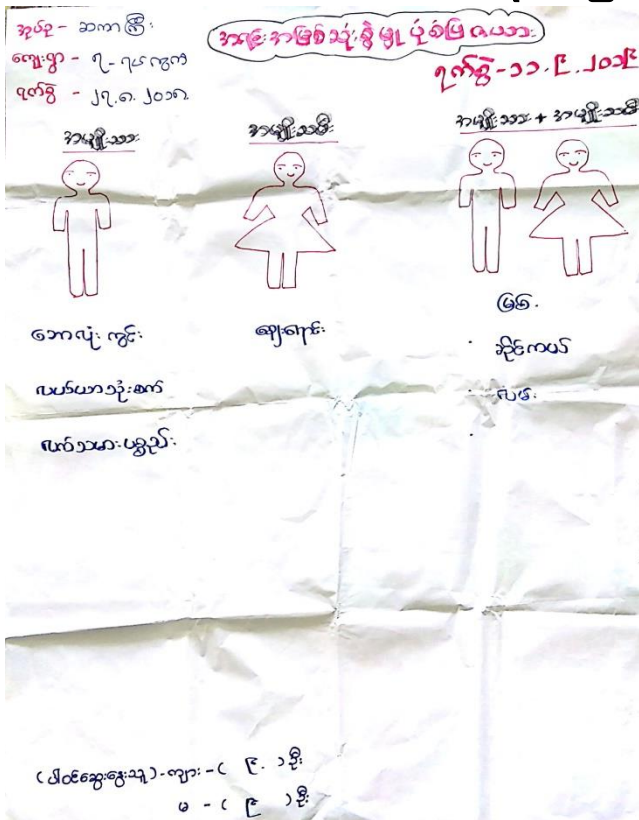 အုပ်စု - ဆကာကြီး
ကျေးရွာ - ၇-ရပ်ကွက်
ရက်စွဲ - ၂၇.၈.၂၀၁၈
အရင်းအမြစ်သုံးစွဲမှု ပုံစံပြဇယား
ရက်စွဲ-၁၁.၉.၂၀၁၉
အမျိုးသား
အမျိုးသမီး
အမျိုးသား + အမျိုးသမီး
ဘောလုံးကွင်း
လယ်ယာသုံးစက်
လက်သမားပစ္စည်း
ဈေးရောင်း
မြစ်.
ဆိုင်ကယ်
လမ်း
(ပါဝင်ဆွေးနွေးသူ)-ကျား-( ၉. )ဦး
မ - ( ၉ )ဦး